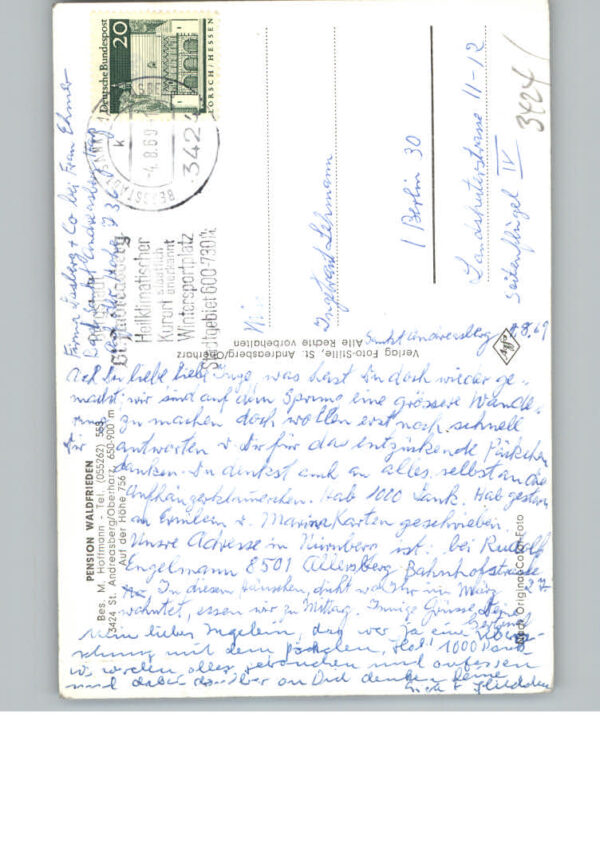 Deutsche Bundespost
20
LORSCH / HESSEN
3424
-4.8.69
Heilklimatischer
Kurort
staatlich anerkannt
Wintersportplatz
Skigebiet 600-730m
bei Frau Ehmer
Sankt Andreasberg
Ingeborg Lehmann
1 Berlin 30
Landshuterstrasse 11-12
Seitenflügel IV
3424
Verlag Foto-Stille, St. Andreasberg/Oberharz
Alle Rechte vorbehalten
Agfa
Nach Original-Color-Foto
PENSION WALDFRIEDEN
Bes. M. Hoffmann - Tel. (055262) 553
3424 St. Andreasberg/Oberharz, 650-900 m
Auf der Höhe 756
Sankt Andreasberg 4.8.69
Ach Du liebe liebe Inge, was hast Du doch wieder ge-
macht: wir sind auf dem Sprung eine grössere Wande-
zu machen doch wollen erst noch schnell
antworten u. Dir für das entzückende Päckchen
danken. Du denkst auch an alles, selbst an die
Aufhängerklämmerchen. Hab 1000 Dank. Hab gestern
an Emilein u. Marina Karten geschrieben.
Unsre Adresse in Nürnberg ist: bei Rudolf
Engelmann 8501 Allersberg Bahnhofstrasse
In diesem Häuschen, dicht wo Ihr im März
wohntet, essen wir zu Mittag. Innige Grüsse, Deine
Mein liebes Ingelein, das war ja eine Überra-
schung mit dem Päckchen, 1000 Dank
wir werden alles gebrauchen und aufessen
und dabei an Dich denken Deine